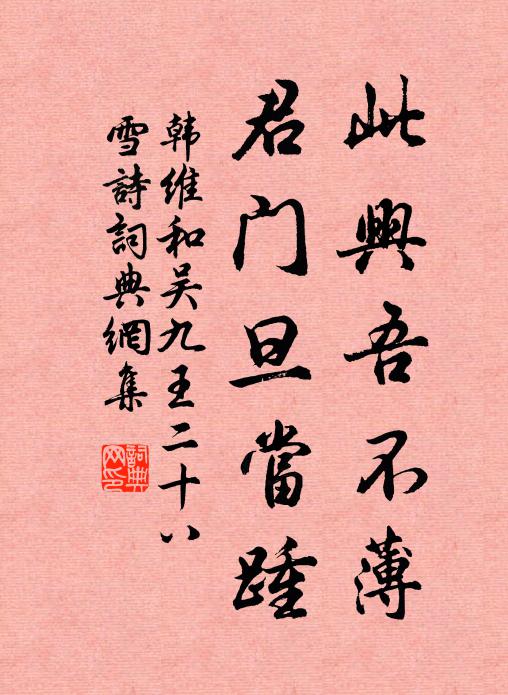 此興吾不薄
君门旦當踵
韩维和吴九王二十八
雪詩詞典網集
詞典
网印